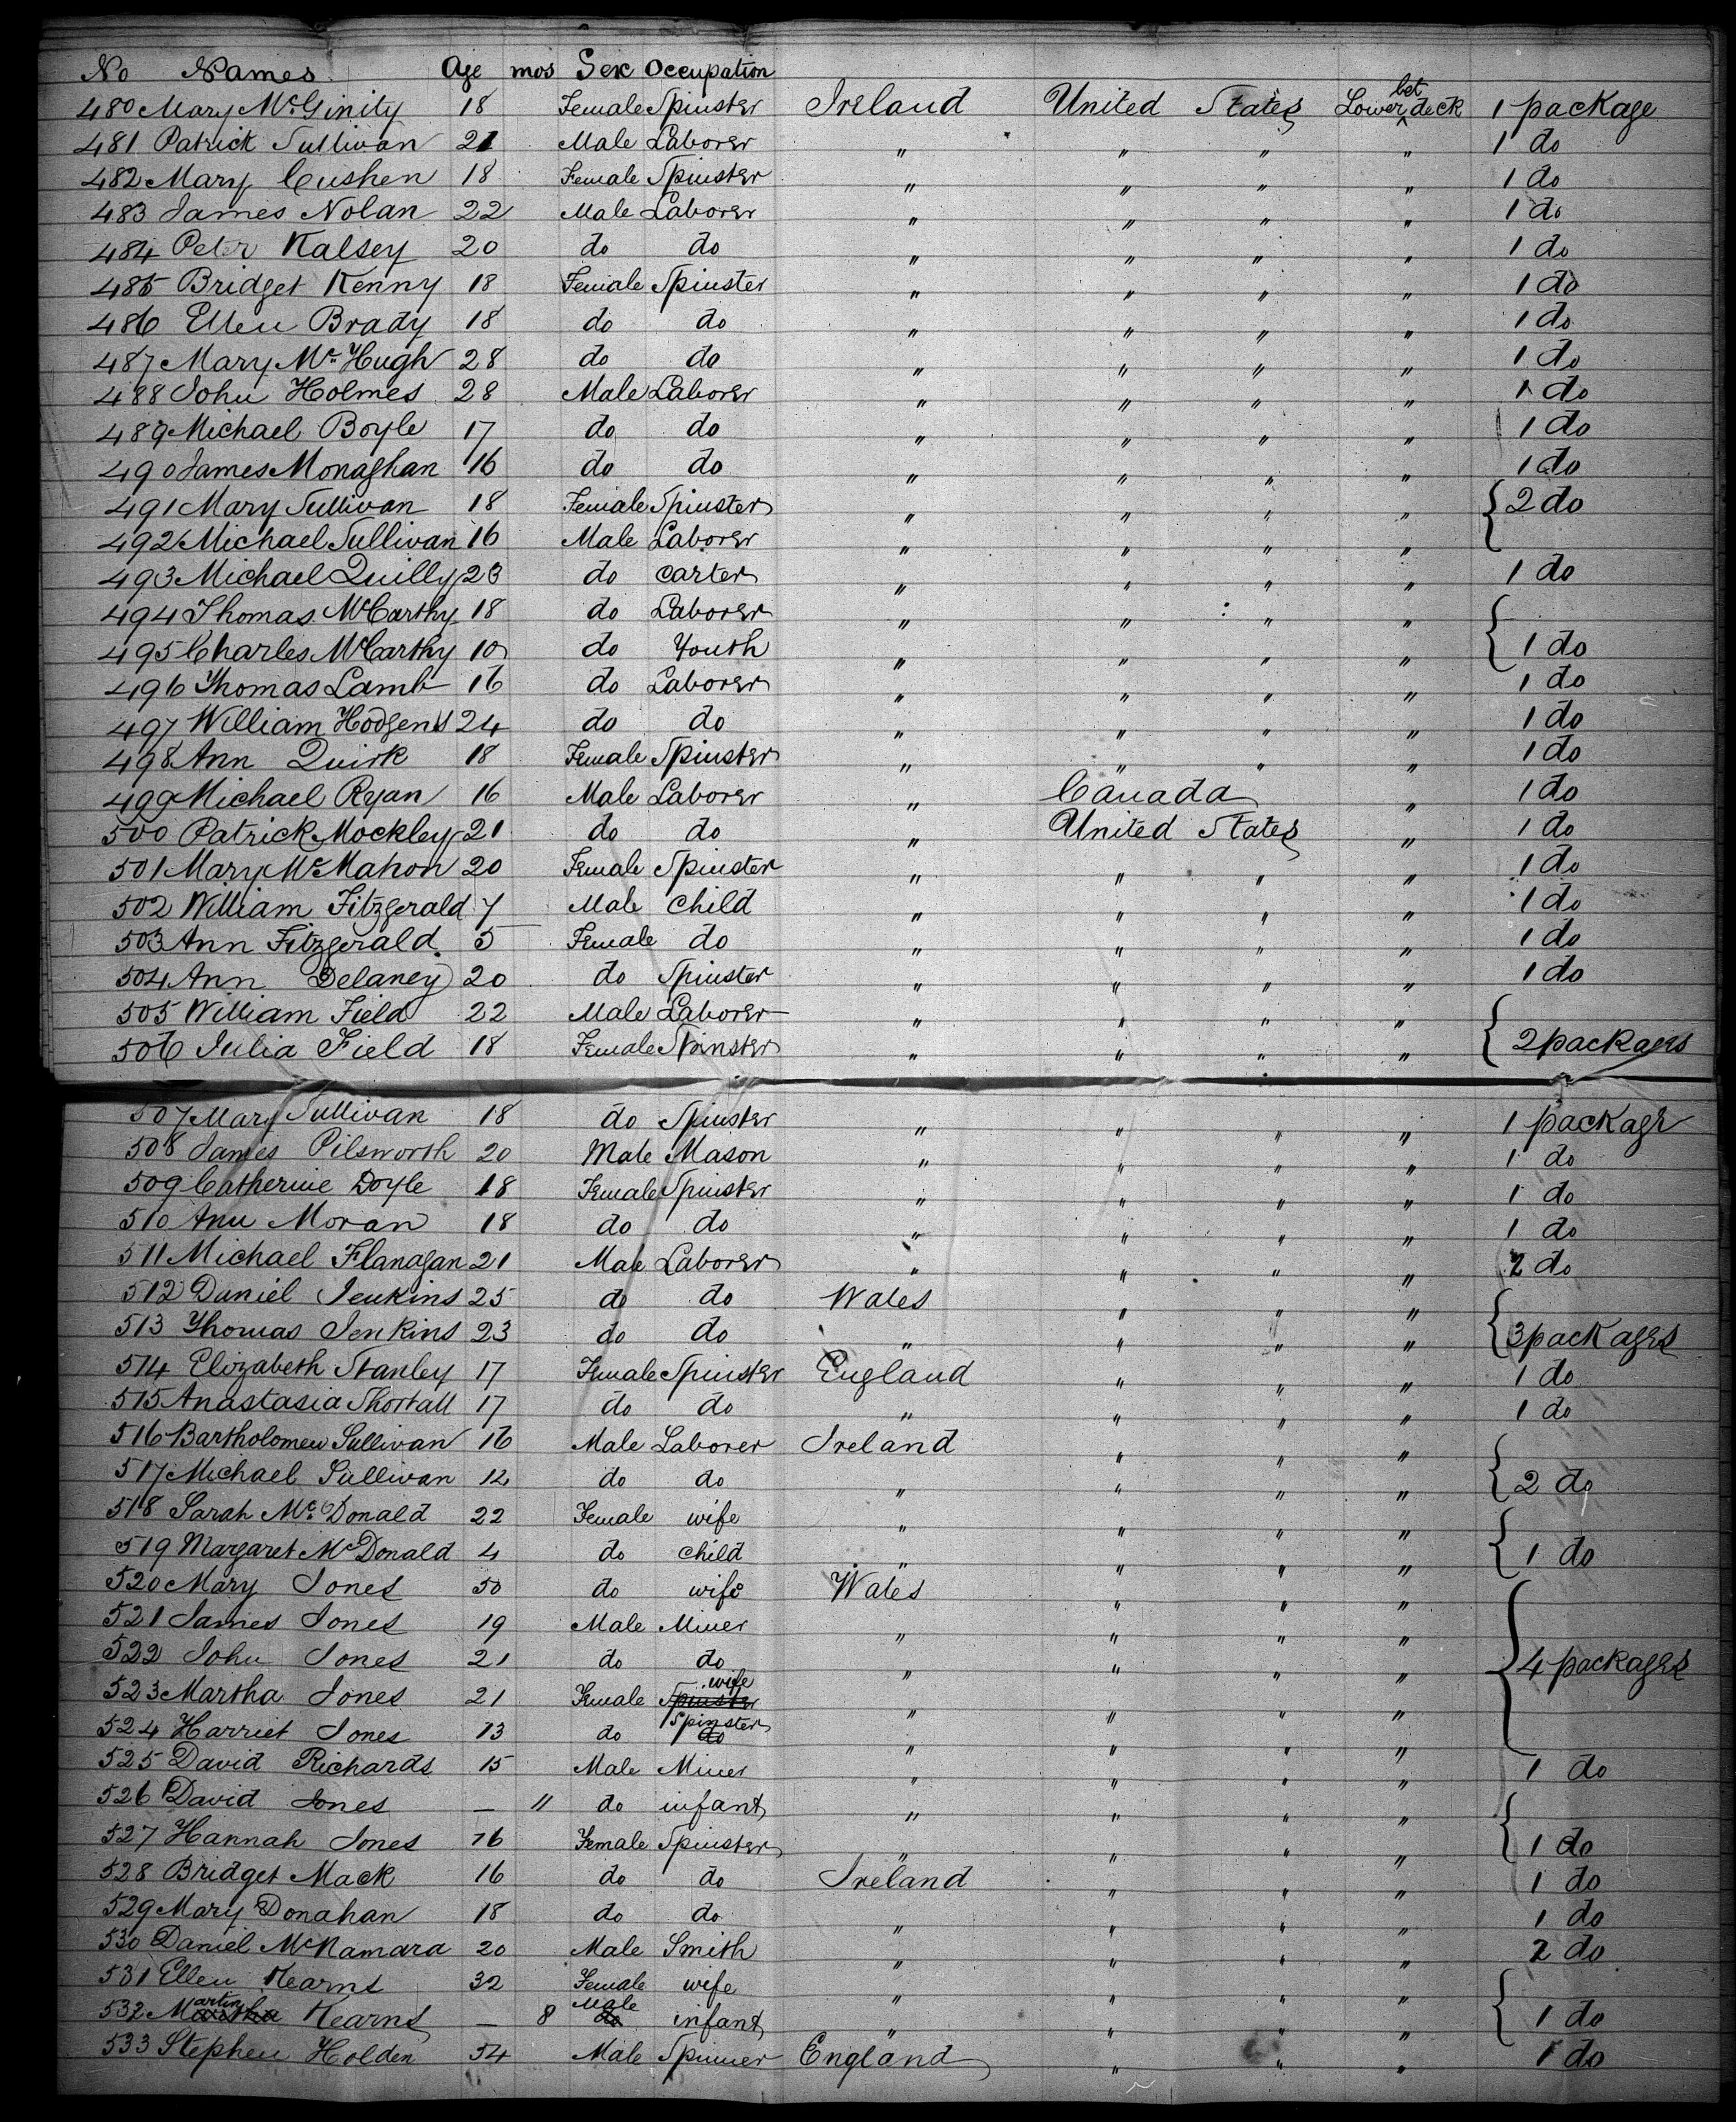 No Names Age mos Sex Occupation
480 Mary McGinity 18 Female Spinster Ireland United States Lower bet deck 1 package
481 Patrick Sullivan 21 Male Laborer " " " " 1 do
482 Mary Cushen 18 Female Spinster " " " " 1 do
483 James Nolan 22 Male Laborer " " " " 1 do
484 Peter Kalsey 20 do do " " " " 1 do
485 Bridget Kenny 18 Female Spinster " " " " 1 do
486 Ellen Brady 18 do do " " " " 1 do
487 Mary McHugh 28 do do " " " " 1 do
488 John Holmes 28 Male Laborer " " " " 1 do
489 Michael Boyle 17 do do " " " " 1 do
490 James Monaghan 16 do do " " " " 1 do
491 Mary Sullivan 18 Female Spinster " " " " 2 do
492 Michael Sullivan 16 Male Laborer " " " "
493 Michael Quilly 23 do Carter " " " " 1 do
494 Thomas McCarthy 18 do Laborer " " " "
495 Charles McCarthy 10 do Youth " " " " 1 do
496 Thomas Lamb 16 do Laborer " " " " 1 do
497 William Hodgens 24 do do " " " " 1 do
498 Ann Quirk 18 Female Spinster " " " " 1 do
499 Michael Ryan 16 Male Laborer " Canada " 1 do
500 Patrick Mockley 21 do do " United States " 1 do
501 Mary McMahon 20 Female Spinster " " " " 1 do
502 William Fitzgerald 7 Male Child " " " " 1 do
503 Ann Fitzgerald 5 Female do " " " " 1 do
504 Ann Delaney 20 do Spinster " " " " 1 do
505 William Field 22 Male Laborer " " " "
506 Julia Field 18 Female Spinster " " " " 2 packages
507 Mary Sullivan 18 do Spinster " " " " 1 package
508 James Pilsworth 20 Male Mason " " " " 1 do
509 Catherine Doyle 18 Female Spinster " " " " 1 do
510 Ann Moran 18 do do " " " " 1 do
511 Michael Flanagan 21 Male Laborer " " " " 2 do
512 Daniel Jenkins 25 do do Wales " " "
513 Thomas Jenkins 23 do do " " " " 3 packages
514 Elizabeth Stanley 17 Female Spinster England " " " 1 do
515 Anastasia Shortall 17 do do " " " " 1 do
516 Bartholomew Sullivan 16 Male Laborer Ireland " " "
517 Michael Sullivan 12 do do " " " " 2 do
518 Sarah McDonald 22 Female wife " " " "
519 Margaret McDonald 4 do child " " " " 1 do
520 Mary Jones 50 do wife Wales " " "
521 James Jones 19 Male Miner " " " "
522 John Jones 21 do do " " " " 4 packages
523 Martha Jones 21 Female Spinster wife " " " "
524 Harriet Jones 13 do do Spinster " " " "
525 David Richards 15 Male Miner " " " " 1 do
526 David Jones — 11 do infant " " " "
527 Hannah Jones 16 Female Spinster " " " " 1 do
528 Bridget Mack 16 do do Ireland " " " 1 do
529 Mary Donahan 18 do do " " " " 1 do
530 Daniel McNamara 20 Male Smith " " " " 2 do
531 Ellen Kearns 32 Female wife " " " "
532 Martin Kearns — 8 Male infant " " " " 1 do
533 Stephen Holden 54 Male Spinner England " " " 1 do